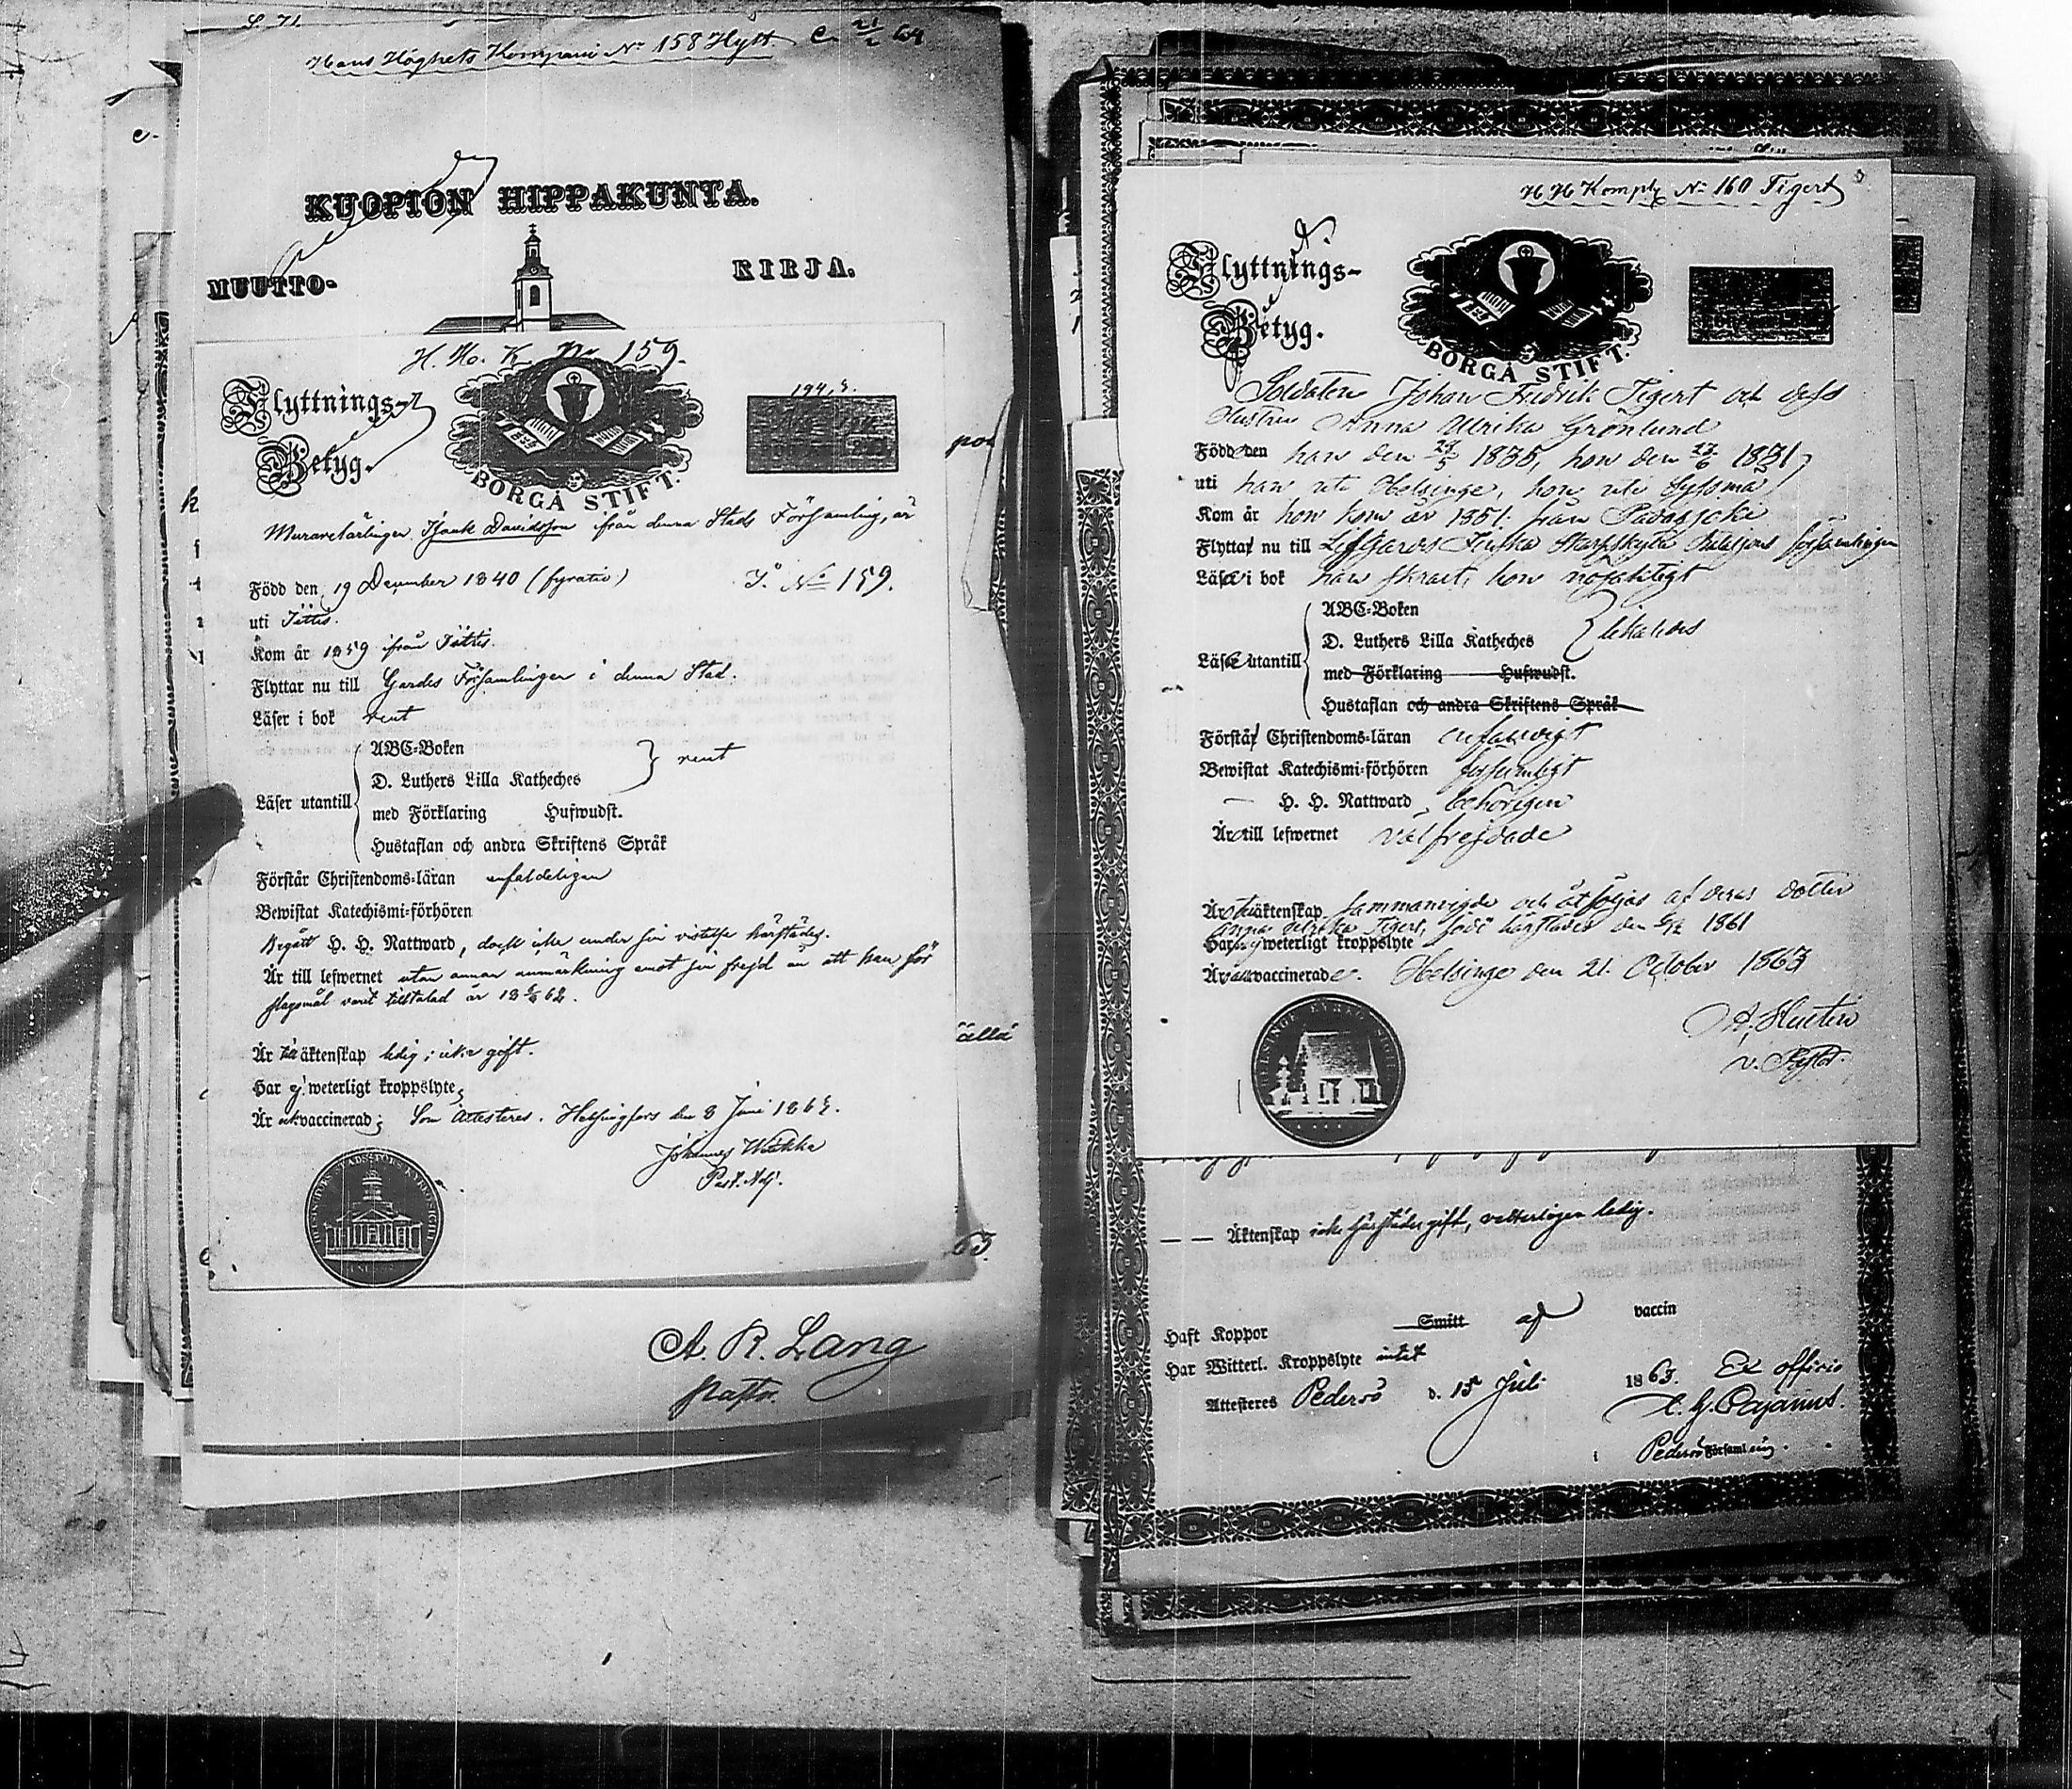 S. 71.
Hans Höghets Kompani No 158 Hytt. C. 21/2 64
KUOPION HIPPAKUNTA.
MUUTTO- KIRJA.
H. Ho. K. No 159.
Flyttnings-
Betyg.
BORGÅ STIFT.
194,3.
Murarelärlingen Isaak Davidsson ifrån denna Stads Församling, är
Född den 19 December 1840 (fyratio) I. No 159.
uti Jättis.
Kom år 1859 ifrån Jättis.
Flyttar nu till Gardes Församlingen i denna Stad.
Läser i bok rent
Läser utantill
ABC-Boken
D. Luthers Lilla Katheches } rent
med Förklaring Hufwudst.
Hustaflan och andra Skriftens Språk
Förstår Christendoms-läran enfaldeligen
Bewistat Katechismi-förhören
Begått H. H. Nattward, dock icke under sin vistelse härstädes.
Är till lefwernet utan annan anmärkning emot sin frejd än att han för
slagsmål varit tilltalad år 18 62.
Är till äktenskap ledig; icke gift.
Har ej weterligt kroppslyte;
Är ock vaccinerad; Som attesteres. Helsingfors den 8 Juni 186
Johannes
Past. Adj.
ällä
63.
A. R. Lang
Pastor.
H H Komp No 160 Tigert
Flyttnings-
Betyg.
BORGÅ STIFT.
Soldaten Johan Fredrik Tigert och dess
Hustru Anna Ulrika Grönlund
Födde den han den 29/5 1835, hon den 1831
uti han uti Helsinge, hon uti Syssmä
Kom år hon kom år 1851 från Padasjoki
Flytta nu till LifGardes Finska Skarpskytte Bataljons församlingen
Läsa i bok han svart, hon nöjaktigt
Läsa utantill
ABC-Boken
D. Luthers Lilla Katheches } likaledes
med Förklaring Hufwudst.
Hustaflan och andra Skriftens Språk
Förstå Christendoms-läran enfaldigt
Bewistat Katechismi-förhören försumligt
— H. H. Nattward behörigen
Äro till lefwernet välfrejdade
Äro till äktenskap sammanvigde och åtföljas af deras dotter
Anna Ulrika Tigert, född härstädes den 1861
Har ej weterligt kroppslyte
Är vaccinerade. Helsinge den 21. October 1863
A.
v. Pastor.
— — Äktenskap icke härstädes gift, vetterligen ledig.
Haft Koppor Smitt af vaccin
Har Witterl. Kroppslyte intet
Attesteres Pedersö d. 15 Juli 1863. Ex officio
Pedersö Församling.